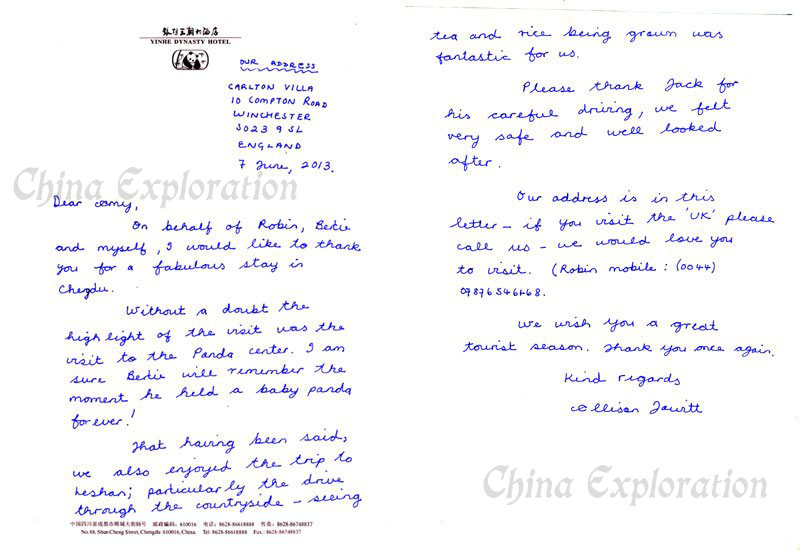 YINHE DYNASTY HOTEL
OUR ADDRESS
CARLTON VILLA
10 COMPTON ROAD
WINCHESTER
SO23 9SL
ENGLAND
7 June, 2013.
Dear Amy,
On behalf of Robin, Bertie
and myself, I would like to thank
you for a fabulous stay in
Chengdu.
Without a doubt the
highlight of the visit was the
visit to the Panda center. I am
sure Bertie will remember the
moment he held a baby panda
forever!
That having been said,
we also enjoyed the trip to
Leshan; particularly the drive
through the countryside – seeing
中国四川省成都市顺城大街88号 邮政编码: 610016 电话: 8628-86618888 传真: 8628-86748837
No.88, Shun Cheng Street, Chengdu 610016, China. Tel: 8628-86618888 Fax: 8628-86748837
tea and rice being grown was
fantastic for us.
Please thank Jack for
his careful driving, we felt
very safe and well looked
after.
Our address is in this
letter – if you visit the 'UK' please
call us – we would love you
to visit. (Robin mobile: (0044)
07876546468.
We wish you a great
tourist season. Thank you once again.
Kind regards
Allison
China Exploration
China Exploration